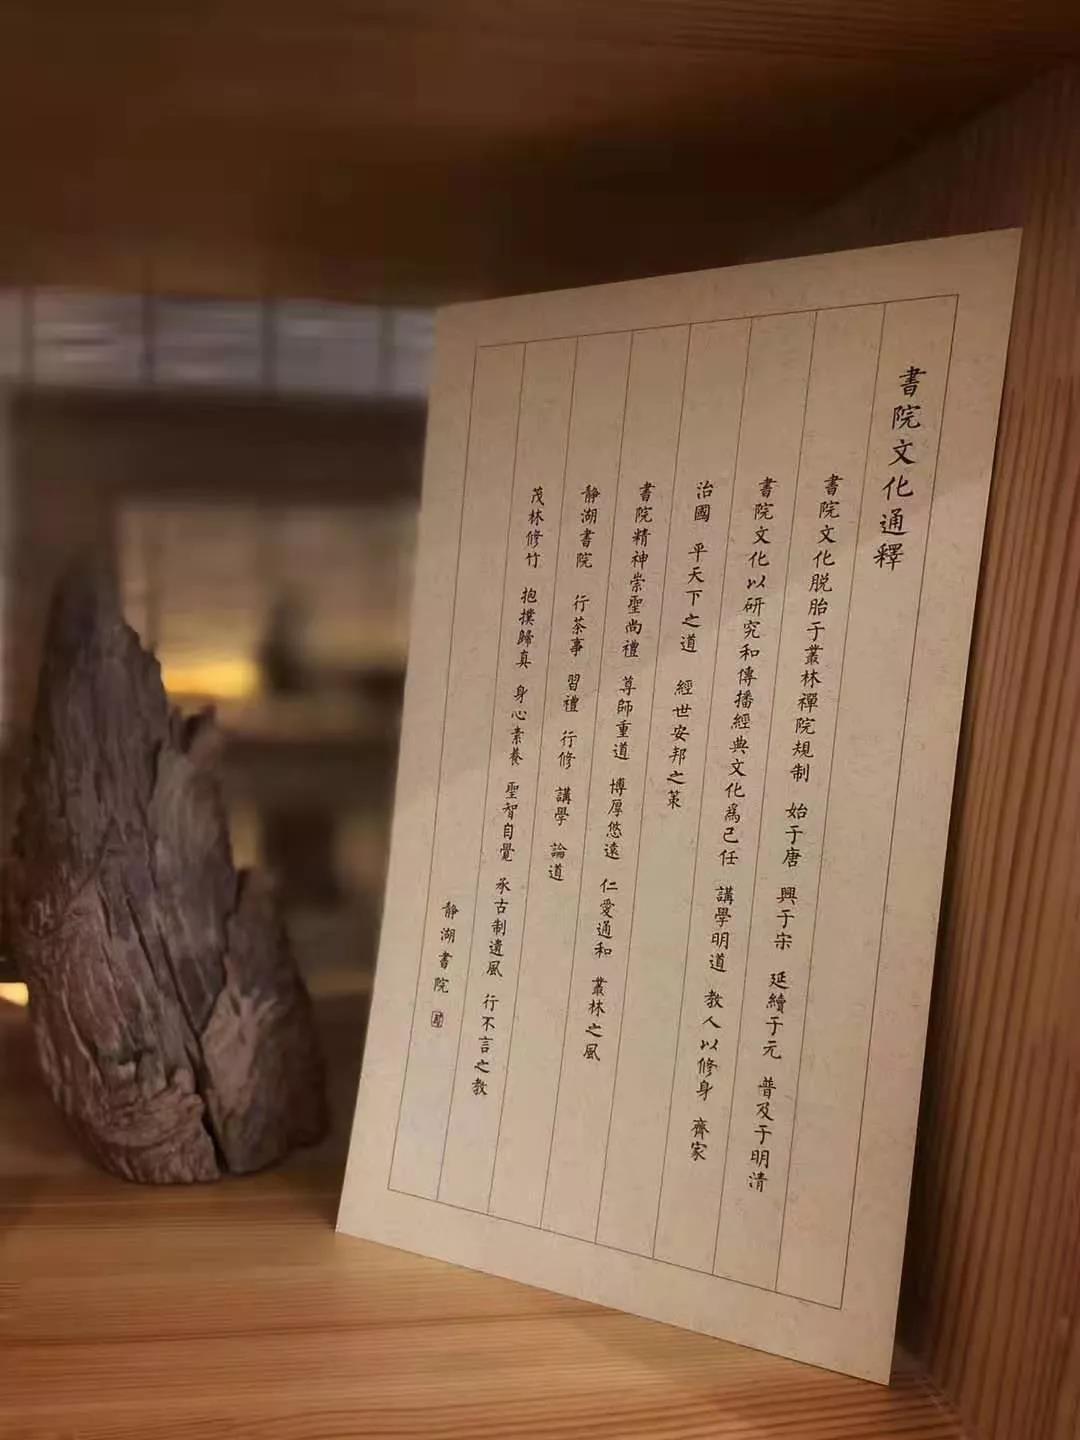 書院文化通釋
書院文化脱胎于叢林禪院規制 始于唐 興于宋 延續于元 普及于明清
書院文化以研究和傳播經典文化爲己任 講學明道 教人以修身 齊家
治國 平天下之道 經世安邦之策
書院精神崇聖尚禮 尊師重道 博厚悠遠 仁愛通和 叢林之風
静湖書院 行茶事 習禮 行修 講學 論道
茂林修竹 抱撲歸真 身心素養 聖智自覺 承古制遺風 行不言之教
静湖書院